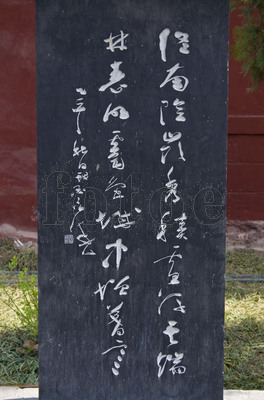 終南陰嶺秀積雪浮云端
林表明霽色城中增暮寒
fotoe